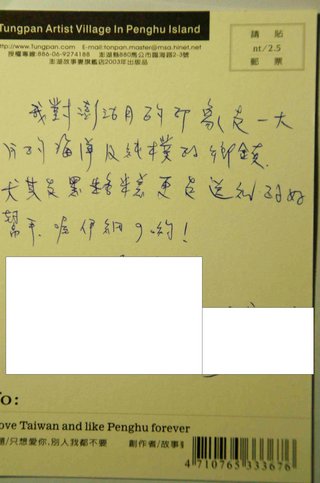 Tungpan Artist Village In Penghu Island
http://www.Tungpan.com E-mail:tonpan.master@msa.hinet.net
授權專線:886-06-9274188 澎湖縣880馬公市臨海路2-3號
澎湖故事妻旗艦店2003年出版品
請 貼
nt/2.5
郵 票
我對澎湖的印象是一大
片的海洋及純樸的鄉鎮.
尤其是黑糖糕更是送禮的好
幫手.
喲!
To:
ove Taiwan and like Penghu forever
題/只想愛你,別人我都不要 創作者/故事妻
4 710765 333676